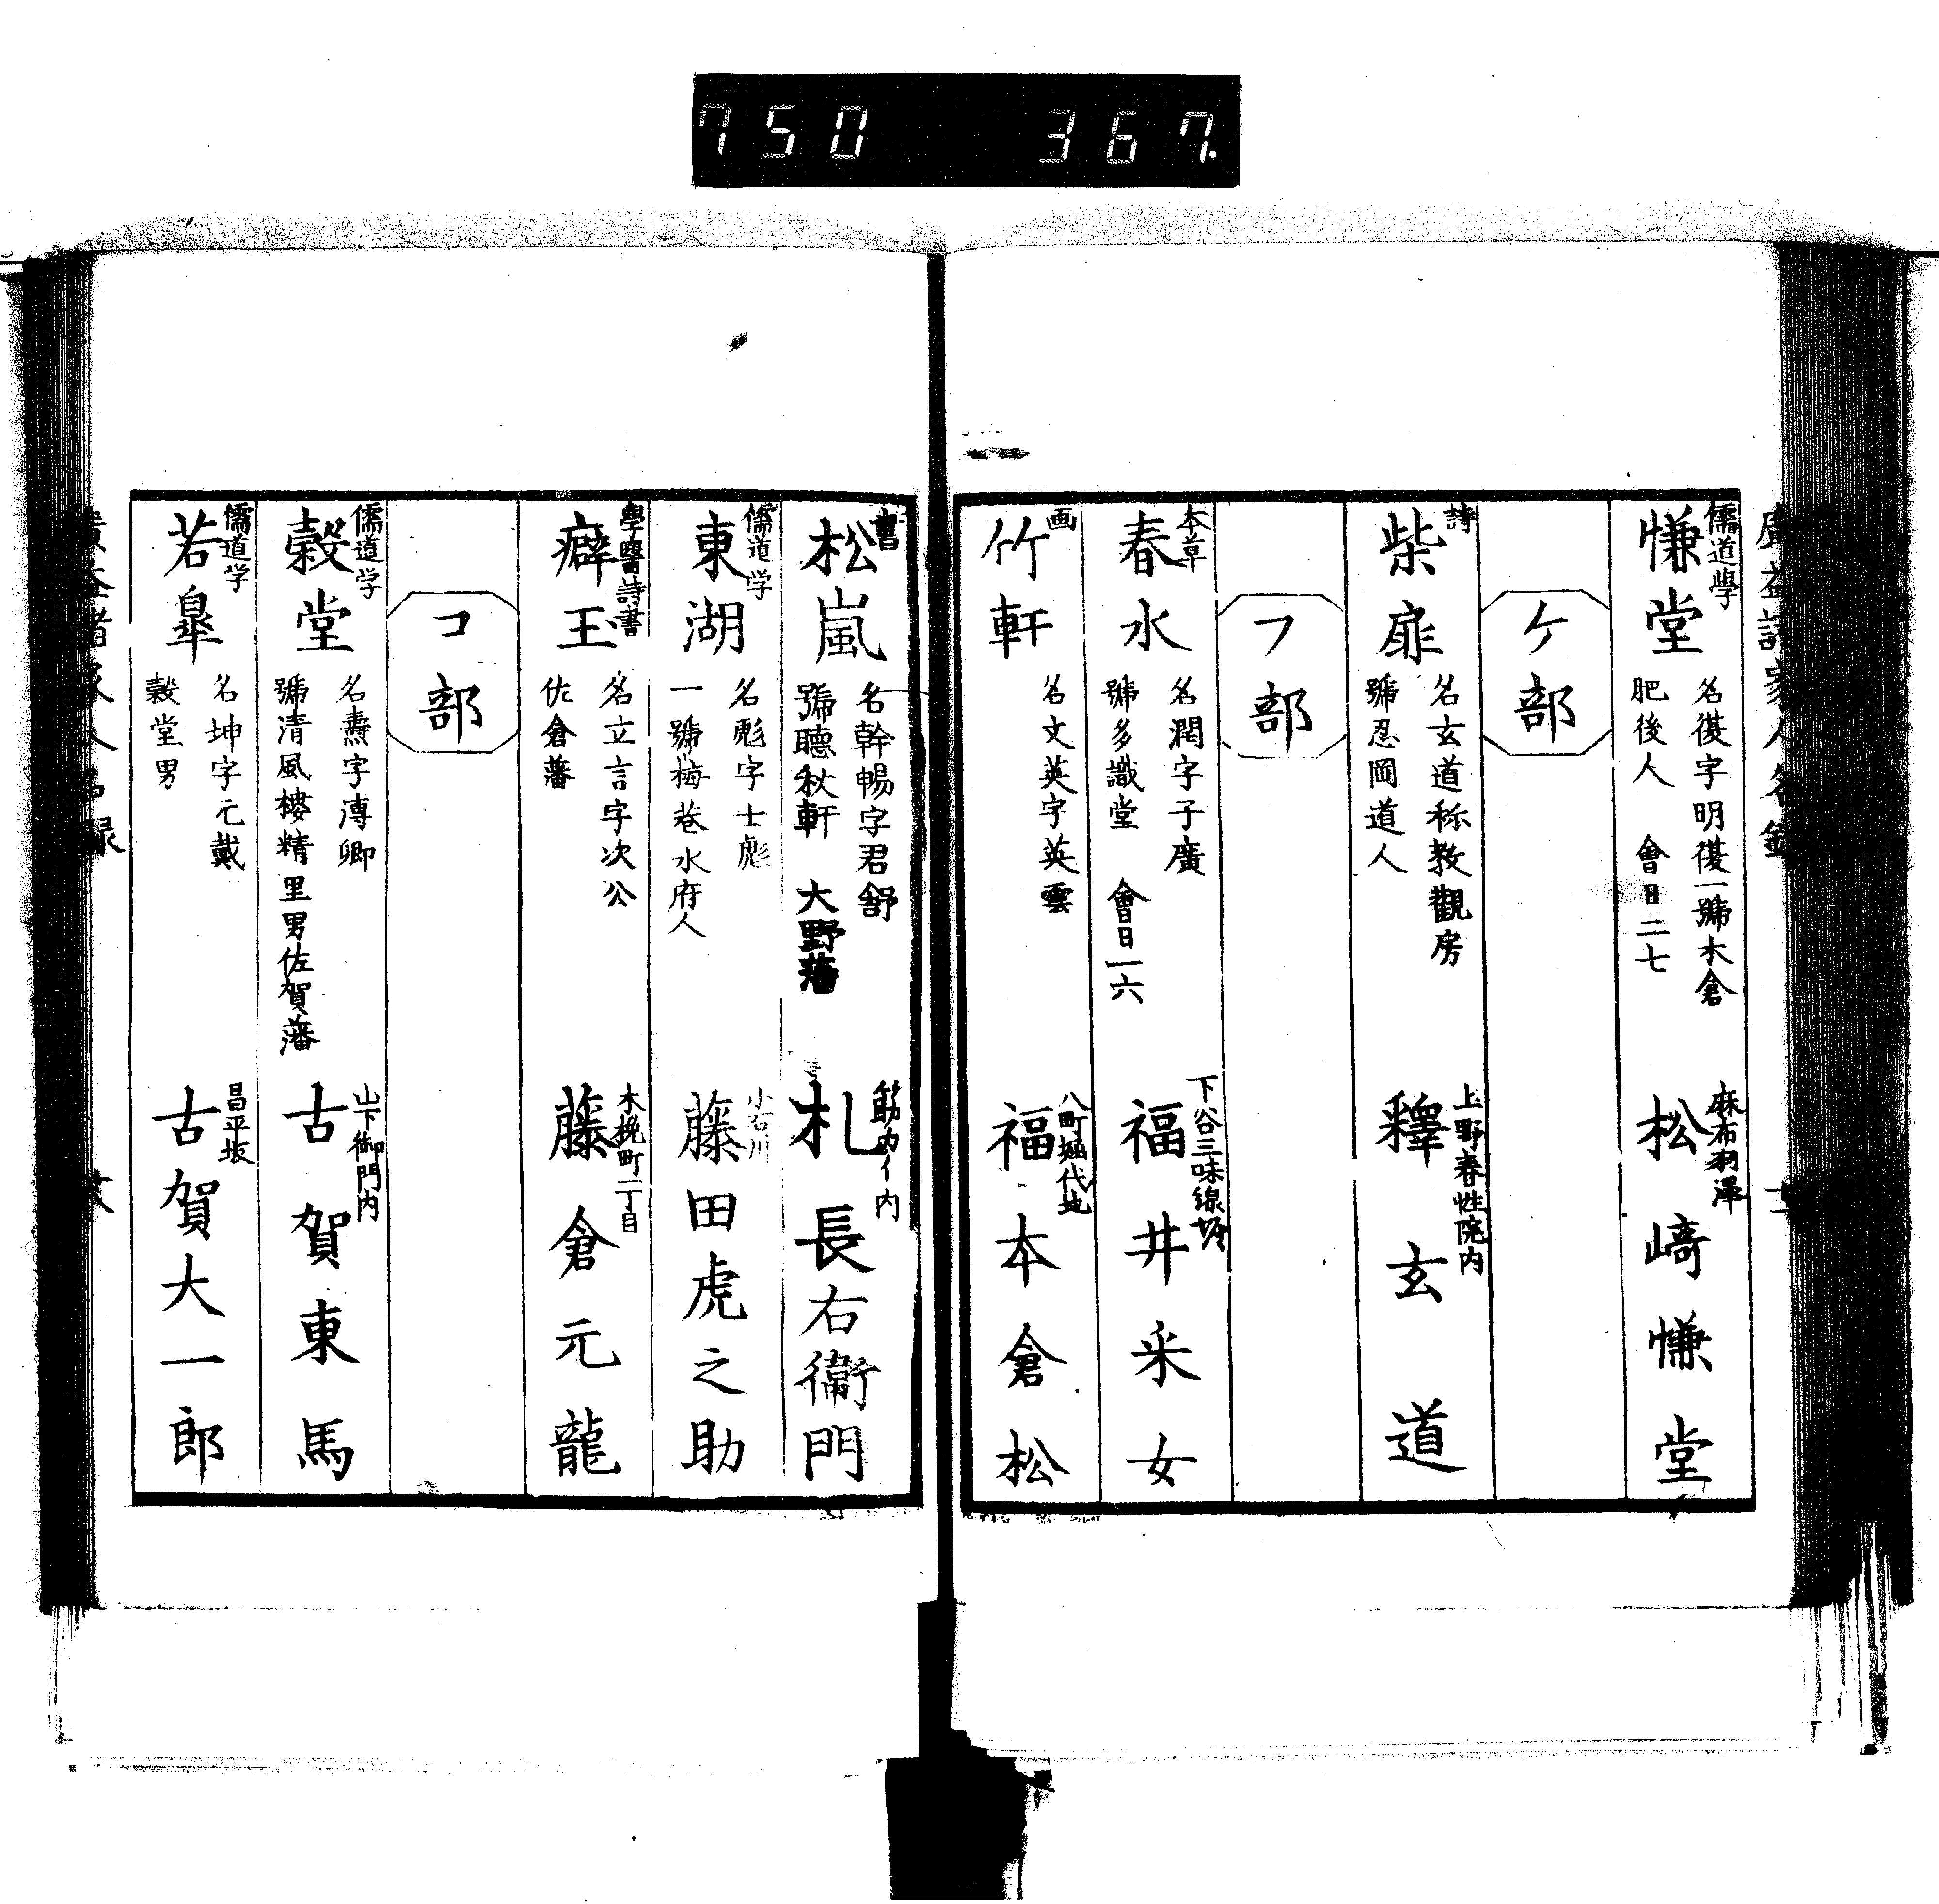 750 367.
廣益諸家人名錄
儒道學
慊堂
名復字明復一號木倉
肥後人 會日二七
麻布羽澤
松﨑慊堂
ケ部
詩
柴扉
名玄道称教觀房
號忍岡道人
上野春性院内
釋玄道
フ部
本草
春水
名潤字子廣
號多識堂 會日一六
下谷三味線堀
福井釆女
画
竹軒
名文英字英雲
八町堀代地
福本倉松
書
松嵐
名幹暢字君舒
號聴秋軒 大野藩
札長右衛門
儒道学
東湖
名彪字士彪
一號梅巷水府人
小石川
藤田虎之助
學醫詩書
癖王
名立言字次公
佐倉藩
木挽町二丁目
藤倉元龍
コ部
儒道学
穀堂
名燾字溥卿
號清風樓精里男佐賀藩
山下御門内
古賀東馬
儒道学
若皐
名坤字元載
穀堂男
昌平坂
古賀大一郎